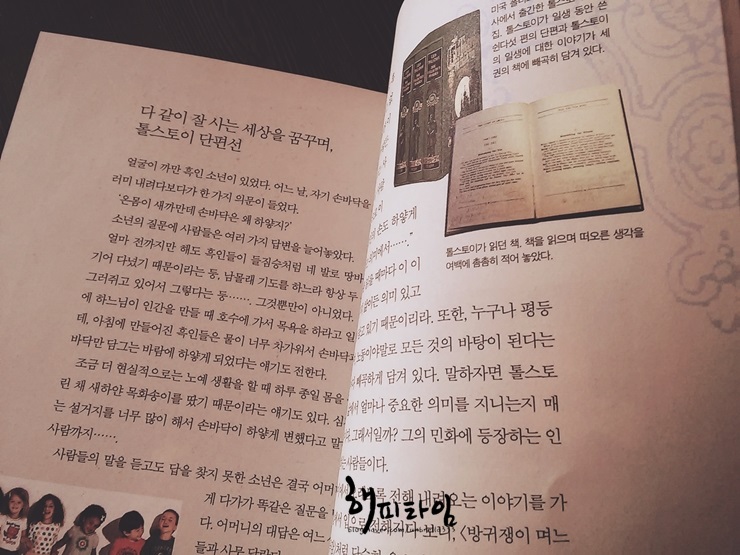 다 같이 잘 사는 세상을 꿈꾸며,
톨스토이 단편선
얼굴이 까만 흑인 소년이 있었다. 어느 날, 자기 손바닥을
러미 내려다보다가 한 가지 의문이 들었다.
'온몸이 새까만데 손바닥은 왜 하얗지?'
소년의 질문에 사람들은 여러 가지 답변을 늘어놓았다.
얼마 전까지만 해도 흑인들이 들짐승처럼 네 발로 땅바
기어 다녔기 때문이라는 둥, 남몰래 기도를 하느라 항상 두
그러쥐고 있어서 그렇다는 둥……. 그것뿐만이 아니었다.
에 하느님이 인간을 만들 때 호수에 가서 목욕을 하라고 일
데, 아침에 만들어진 흑인들은 물이 너무 차가워서 손바닥고
바닥만 담그는 바람에 하얗게 되었다는 얘기도 전한다.
조금 더 현실적으로는 노예 생활을 할 때 하루 종일 몸을
린 채 새하얀 목화송이를 땄기 때문이라는 얘기도 있다. 심
는 설거지를 너무 많이 해서 손바닥이 하얗게 변했다고 말
사람까지…….
사람들의 말을 듣고도 답을 찾지 못한 소년은 결국 어머
게 다가가 똑같은 질문을
다. 어머니의 대답은 여느
들과 사뭇 달랐다
사에서 출간한 톨스토이
집. 톨스토이가 일생 동안 쓴
쉰다섯 편의 단편과 톨스토이
의 일생에 대한 이야기가 세
권의 책에 빼곡히 담겨 있다.
톨스토이가 읽던 책. 책을 읽으며 떠오른 생각을
여백에 촘촘히 적어 놓았다.
손도 하얗게
때마다 이 이
의미 있고
있기 때문이리라. 또한, 누구나 평등
노동이야말로 모든 것의 바탕이 된다는
빼곡하게 담겨 있다. 말하자면 톨스토
에서 얼마나 중요한 의미를 지니는지 매
. 그래서일까? 그의 민화에 등장하는 인
사람들이다.
전해 내려오는 이야기를 가
보니, 〈방귀쟁이 며느
해피타임